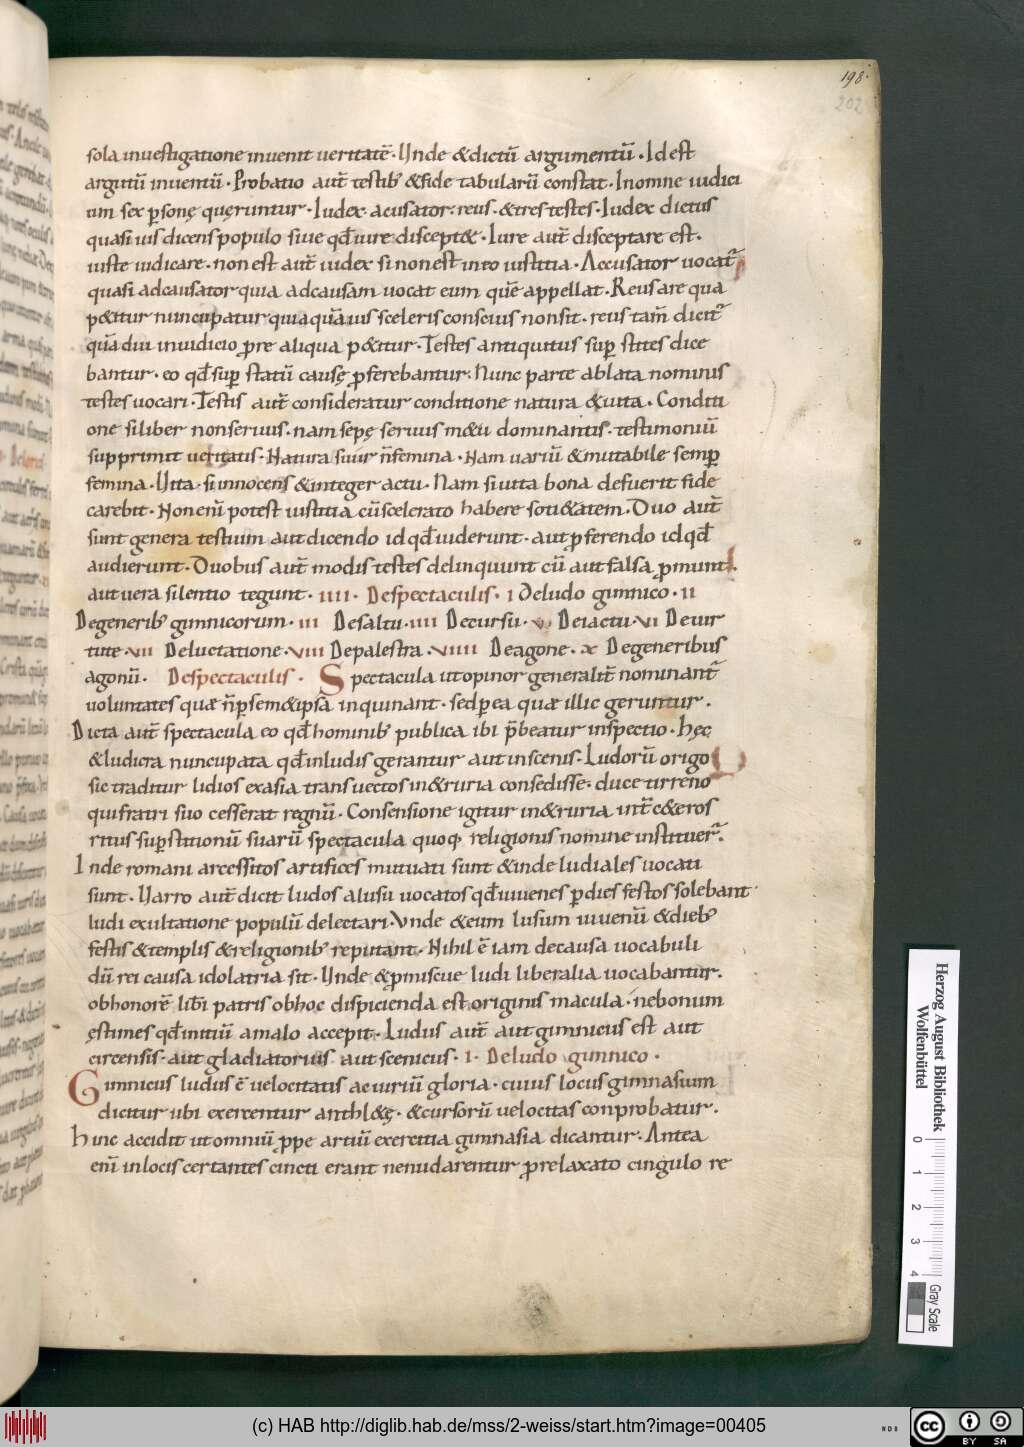 198.
202
sola inuestigatione inuenit ueritatē. Unde & dictū argumentū. Id est
argutū inuentū. Probatio aut̄ testib; & fide tabularū constat. In omne iudici
um sex ꝑsonę quęruntur. Iudex. acusator. reus. & tres testes. Iudex dictus
quasi ius dicens populo siue qđ iure discept&. Iure aut̄ disceptare est.
iuste iudicare. non est aut̄ iudex si non est in eo iustitia. Accusator uocat̄
quasi adcausator quia ad causam uocat eum quē appellat. Reus a re qua
p&itur nuncupatur quia quāuis sceleris conscius non sit. reus tam̄ dicit̄
quādiu in iudicio ꝓ re aliqua p&itur. Testes antiquitus suꝑ stites dice
bantur. eo qđ suꝑ statū causę ꝓferebantur. Nunc parte ablata nominis
testes uocari. Testis aut̄ consideratur conditione natura & uita. Conditi
one si liber non seruus. nam sepę seruus m&u dominantis. testimoniū
supprimit ueritatis. Natura si uir n̄ femina. Nam uariū & mutabile semꝑ
femina. Uita. si innocens & integer actu. Nam si uita bona defuerit fide
carebit. Non enī potest iustitia cū scelerato habere soti&atem. Duo aut̄
sunt genera testium aut dicendo id qđ uiderunt. aut ꝓferendo id qđ
audierunt. Duobus aut̄ modis testes delinquunt cū aut falsa ꝓmunt.
aut uera silentio tegunt. IIII. De spectaculis. I De ludo gimnico. II
De generib; gimnicorum. III De saltu. IIII De cursu. V De iactu. VI De uir
tute. VII De luctatione. VIII De palestra. VIIII De agone. X De generibus
agonū. De spectaculis. Spectacula ut opinor generalit̄ nominant̄
uoluntates quæ n̄ ꝑ sem&ipsa inquinant. sed ꝑ ea quæ illic geruntur.
Dicta aut̄ spectacula eo qđ hominib; publica ibi p̄beatur inspectio. hęc
& ludicra nuncupata qđ in ludis gerantur aut in scenis. Ludorū origo
sic traditur lidios ex asia transuectos in &ruria consedisse. duce tirreno
qui fratri suo cesserat regnū. Consensione igitur in &ruria int̄ c&eros
ritus suꝑstitionū suarū spectacula quoq; religionis nomine instituer̄.
Inde romani arcessitos artifices mutuati sunt & inde ludi a lęs uocati
sunt. Uarro aut̄ dicit ludos a lusu uocatos qđ iuuenes ꝑ dies festos solebant
ludi exultatione populū delectari. Unde & eum lusum iuuenū & dieb;
festis & templis & religionib; reputant. Nihil ē iam de causa uocabuli
dū rei causa idolatria sit. Unde & ꝓmiscue ludi liberalia uocabantur.
ob honorē lib̄i patris ob hoc dispicienda est originis macula. ne bonum
ęstimes qđ initiū a malo accepit. Ludus aut̄ aut gimnicus est aut
circensis. aut gladiatorius aut scenicus. I. De ludo gimnico.
Gimnicus ludus ē uelocitatis ac uiriū gloria. cuius locus gimnasium
dicitur ubi exercentur anthl&ę. & cursorū uelocitas conprobatur.
hinc accidit ut omniū ꝓpe artiū exercitia gimnasia dicantur. Antea
enī in locis certantes cincti erant ne nudarentur ꝓ relaxato cingulo re
Herzog August Bibliothek
Wolfenbüttel
0 1 2 3 4
Gray Scale
(c) HAB http://diglib.hab.de/mss/2-weiss/start.htm?image=00405
WDB
cc BY SA